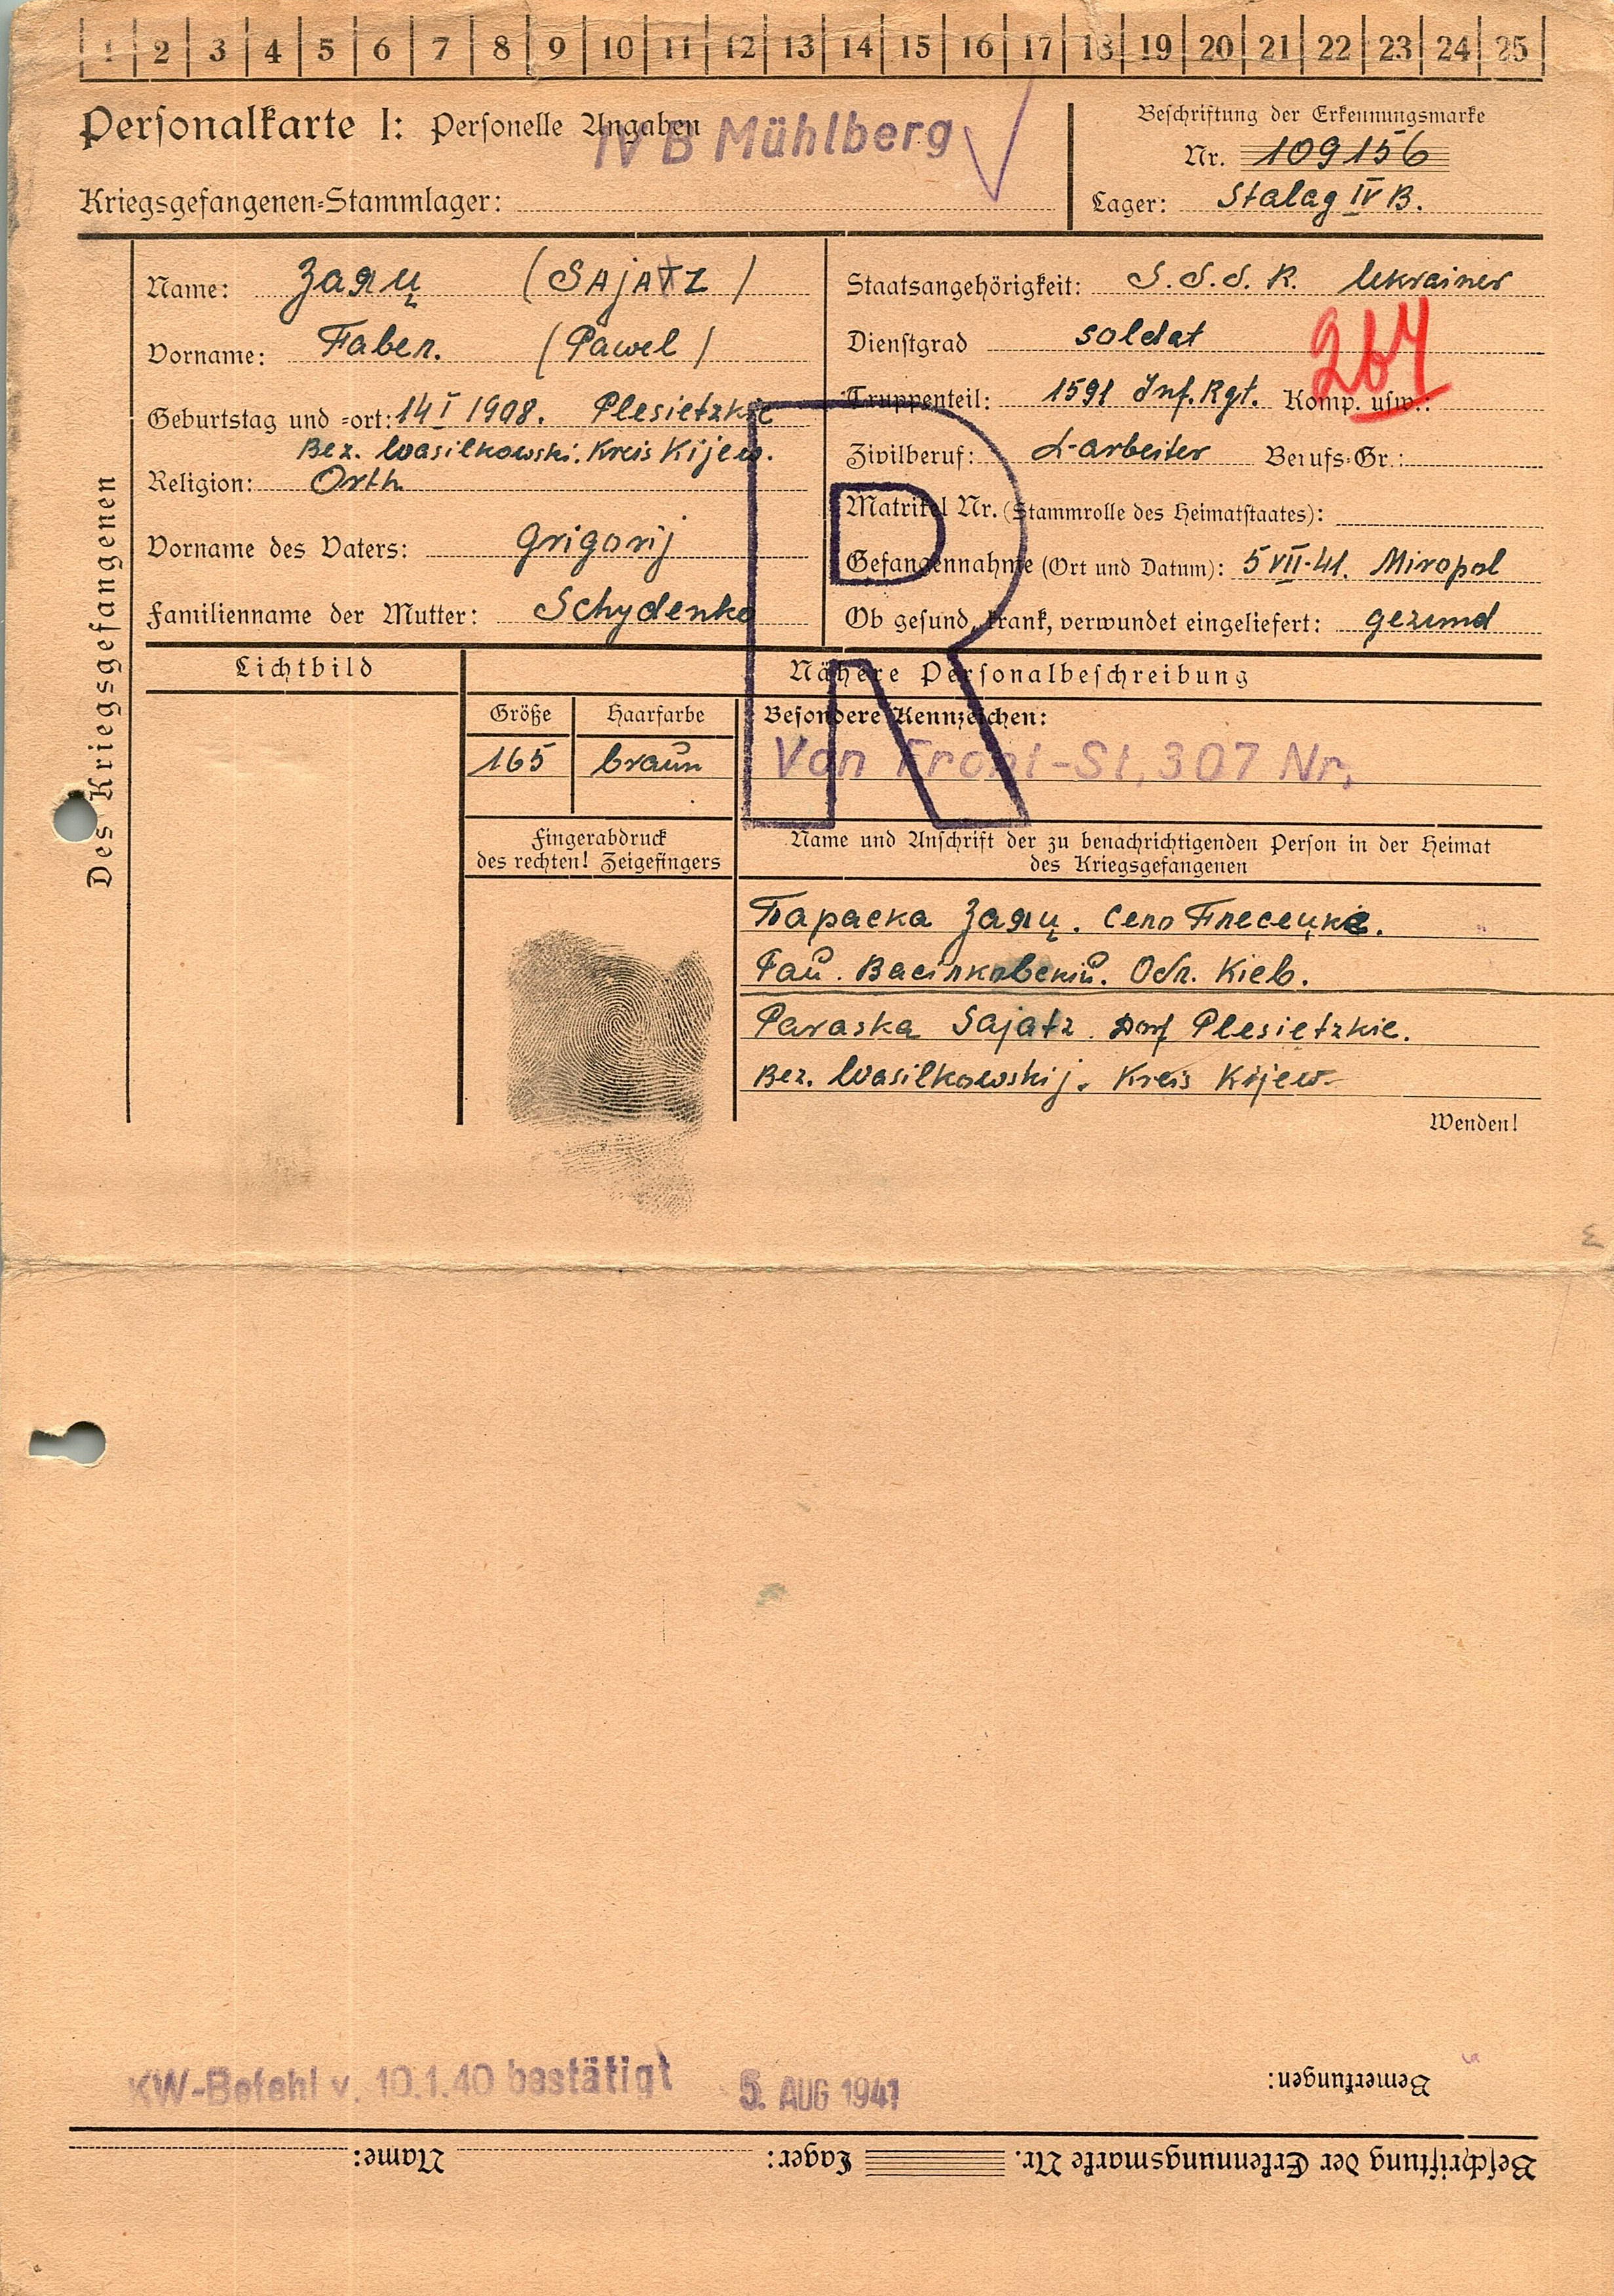 1 2 3 4 5 6 7 8 9 10 11 12 13 14 15 16 17 18 19 20 21 22 23 24 25
Personalkarte I: Personelle Angaben
IV B Mühlberg
Kriegsgefangenen-Stammlager:
Beschriftung der Erkennungsmarke
Nr. 109156
Lager: Stalag IV B.
Des Kriegsgefangenen
Name: Заяц (SAJATZ)
Vorname: Павел. (Pawel)
Geburtstag und -ort: 14 I 1908. Plesietzkie
Bez. Wasilkowski. Kreis Kijew.
Religion: Orth
Vorname des Vaters: Grigorij
Familienname der Mutter: Schydenko
Staatsangehörigkeit: S.S.S.R. Ukrainer
Dienstgrad soldat
267
Truppenteil: 1591 Inf. Rgt. Komp. usw.:
Zivilberuf: L-arbeiter Berufs-Gr.:
Matrikel Nr. (Stammrolle des Heimatstaates):
Gefangennahme (Ort und Datum): 5 VII-41. Miropol
Ob gesund, krank, verwundet eingeliefert: gezund
R
Lichtbild
Nähere Personalbeschreibung
Größe Haarfarbe Besondere Kennzeichen:
165 braun Von Front-St, 307 Nr,
Fingerabdruck
des rechten! Zeigefingers
Name und Anschrift der zu benachrichtigenden Person in der Heimat
des Kriegsgefangenen
Параска Заяц. Село Плесецкіе.
Рай. Васілковский. Обл. Кіев.
Paraska Sajatz. Dorf Plesietzkie.
Bez. Wasilkowskij. Kreis Kijew
Wenden!
KW-Befehl v. 10.1.40 bestätigt 5. AUG 1941
Bemerkungen:
Beschriftung der Erkennungsmarke Nr. Lager: Name: